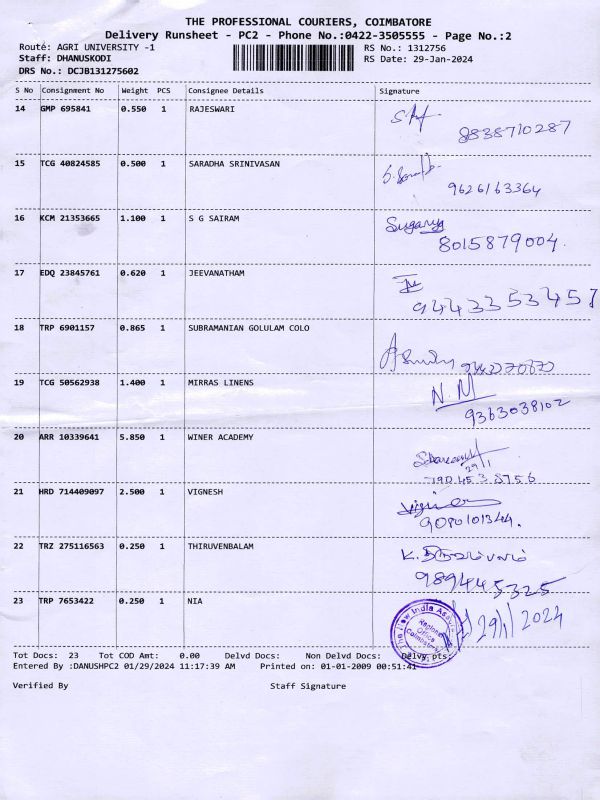 THE PROFESSIONAL COURIERS, COIMBATORE
Delivery Runsheet - PC2 - Phone No.:0422-3505555 - Page No.:2
Route: AGRI UNIVERSITY -1 RS No.: 1312756
Staff: DHANUSKODI RS Date: 29-Jan-2024
DRS No.: DCJB131275602
S No Consignment No Weight PCS Consignee Details Signature
14 GMP 695841 0.550 1 RAJESWARI
8838710287
15 TCG 40824585 0.500 1 SARADHA SRINIVASAN
9626163364
16 KCM 21353665 1.100 1 S G SAIRAM
8015879004
17 EDQ 23845761 0.620 1 JEEVANATHAM
9443353457
18 TRP 6901157 0.865 1 SUBRAMANIAN GOLULAM COLO
19 TCG 50562938 1.400 1 MIRRAS LINENS N.M
9363038102
20 ARR 10339641 5.850 1 WINER ACADEMY
29/1
21 HRD 714409097 2.500 1 VIGNESH
9080101344.
22 TRZ 275116563 0.250 1 THIRUVENBALAM
9894445325
23 TRP 7653422 0.250 1 NIA
The New India Assu
Regional
Office
Coimbatore
29/1/2024
Tot Docs: 23 Tot COD Amt: 0.00 Delvd Docs: Non Delvd Docs: Delvy pts:
Entered By :DANUSHPC2 01/29/2024 11:17:39 AM Printed on: 01-01-2009 00:51:41
Verified By Staff Signature